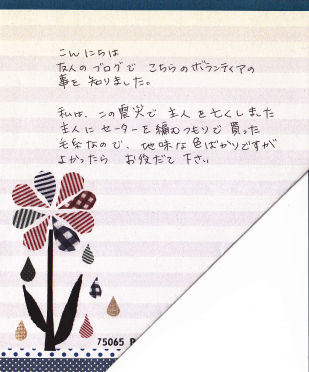 こんにちは
友人のブログで こちらのボランティアの
事を 知りました。
私は、この震災で 主人を亡くしました
主人に セーターを編むつもりで 買った
毛糸なので、地味な色ばかりですが
よかったら お役だて 下さい
75065